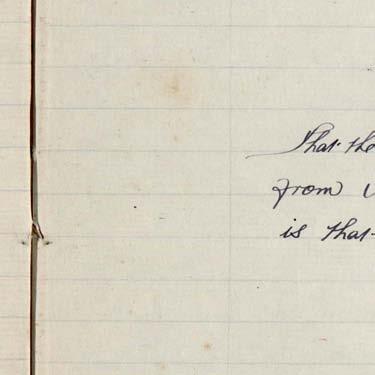 That the
from
is that